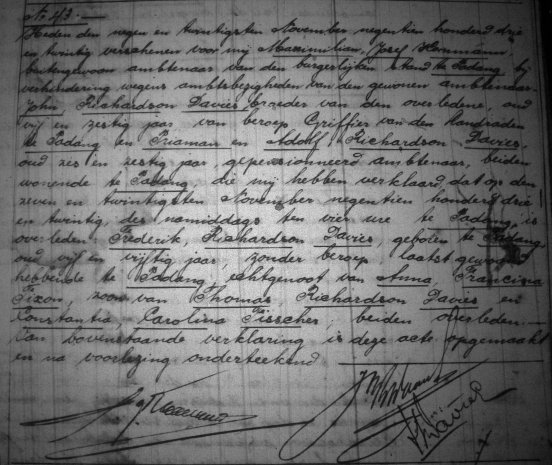 No 43.
Heden den negen en twintigsten November negentien honderd drie
en twintig verschenen voor mij Maximilian, Josef Hermann
buitengewoon ambtenaar van den burgerlijken stand te Padang bij
verhindering wegens ambtsbezigheden van den gewonen ambtenaar
John Richardson Davies, broeder van den overledene, oud
vijf en zestig jaar van beroep Griffier van den Landraden
te Padang en Priaman en Adolf Richardson Davies,
oud zes en zestig jaar, gepensionneerd ambtenaar, beiden
wonende te Padang, die mij hebben verklaard, dat op den
zeven en twintigsten November negentien honderd drie
en twintig, des namiddags ten vier ure te Padang, is
overleden Frederik, Richardson Davies, geboren te Padang
oud vijf en vijftig jaar, zonder beroep laatst gewoond
hebbende te Padang, echtgenoot van Anna, Francina
zoon van Thomas, Richardson Davies en
Constantia, Carolina Fisscher, beiden overleden.
Van bovenstaande verklaring is deze acte opgemaakt
en na voorlezing onderteekend
Davies